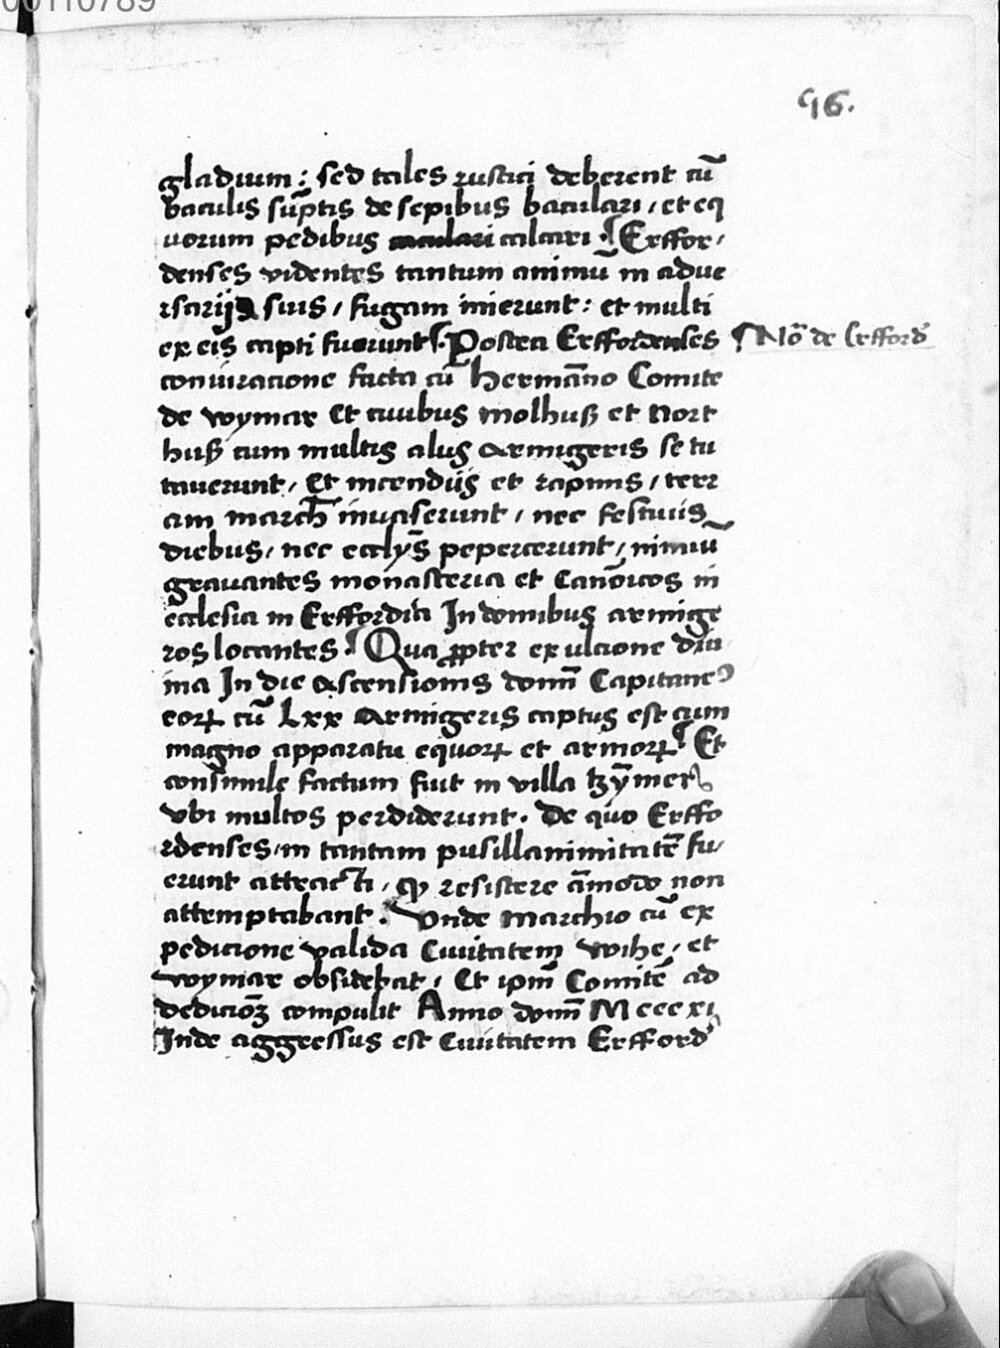 00110789
96.
gladium : sed tales rustici deberent cū
baculis sūptis de sepibus baculari / et eq
uorum pedibus calcari . Erffor/
denses videntes tantum animū in adue
rsarijs suis / fugam inierunt : et multi
ex eis capti fuerunt . Postea Erffordenses
Nō de Erfford
coniuracione facta cū hermāno Comite
de wymar Et ciuibus molhuß et Nort
huß cum multis alijs armigeris se tu
tauerunt / Et incendijs et rapinis / terr
am march inuaserunt / nec festiuis
diebus / nec ecclys pepercerunt / nimiū
grauantes monasteria et Canōicos in
ecclesia in Erffordia In domibus armige
ros locantes . Qua ꝓpter ex ulcione diui
ina In die ascensionis domī Capitaneꝰ
eoꝝ cū Lxx armigeris captus est cum
magno apparatu equoꝝ et armoꝝ Et
consimile factum fuit in villa tzȳmern
vbi multos perdiderunt . De quo Erffo
rdenses / in tantam pusillanimitatē fu/
erunt attracti / ꝙ resistere āmodo non
attemptabant . Vnde marchio cū ex
pedicione valida Ciuitatem wihe / et
wymar obsidebat / Et ipm̄ Comitē ad
dedicioꝫ compulit Anno domī M ccc xi
Inde aggressus est Ciuitatem Erfford